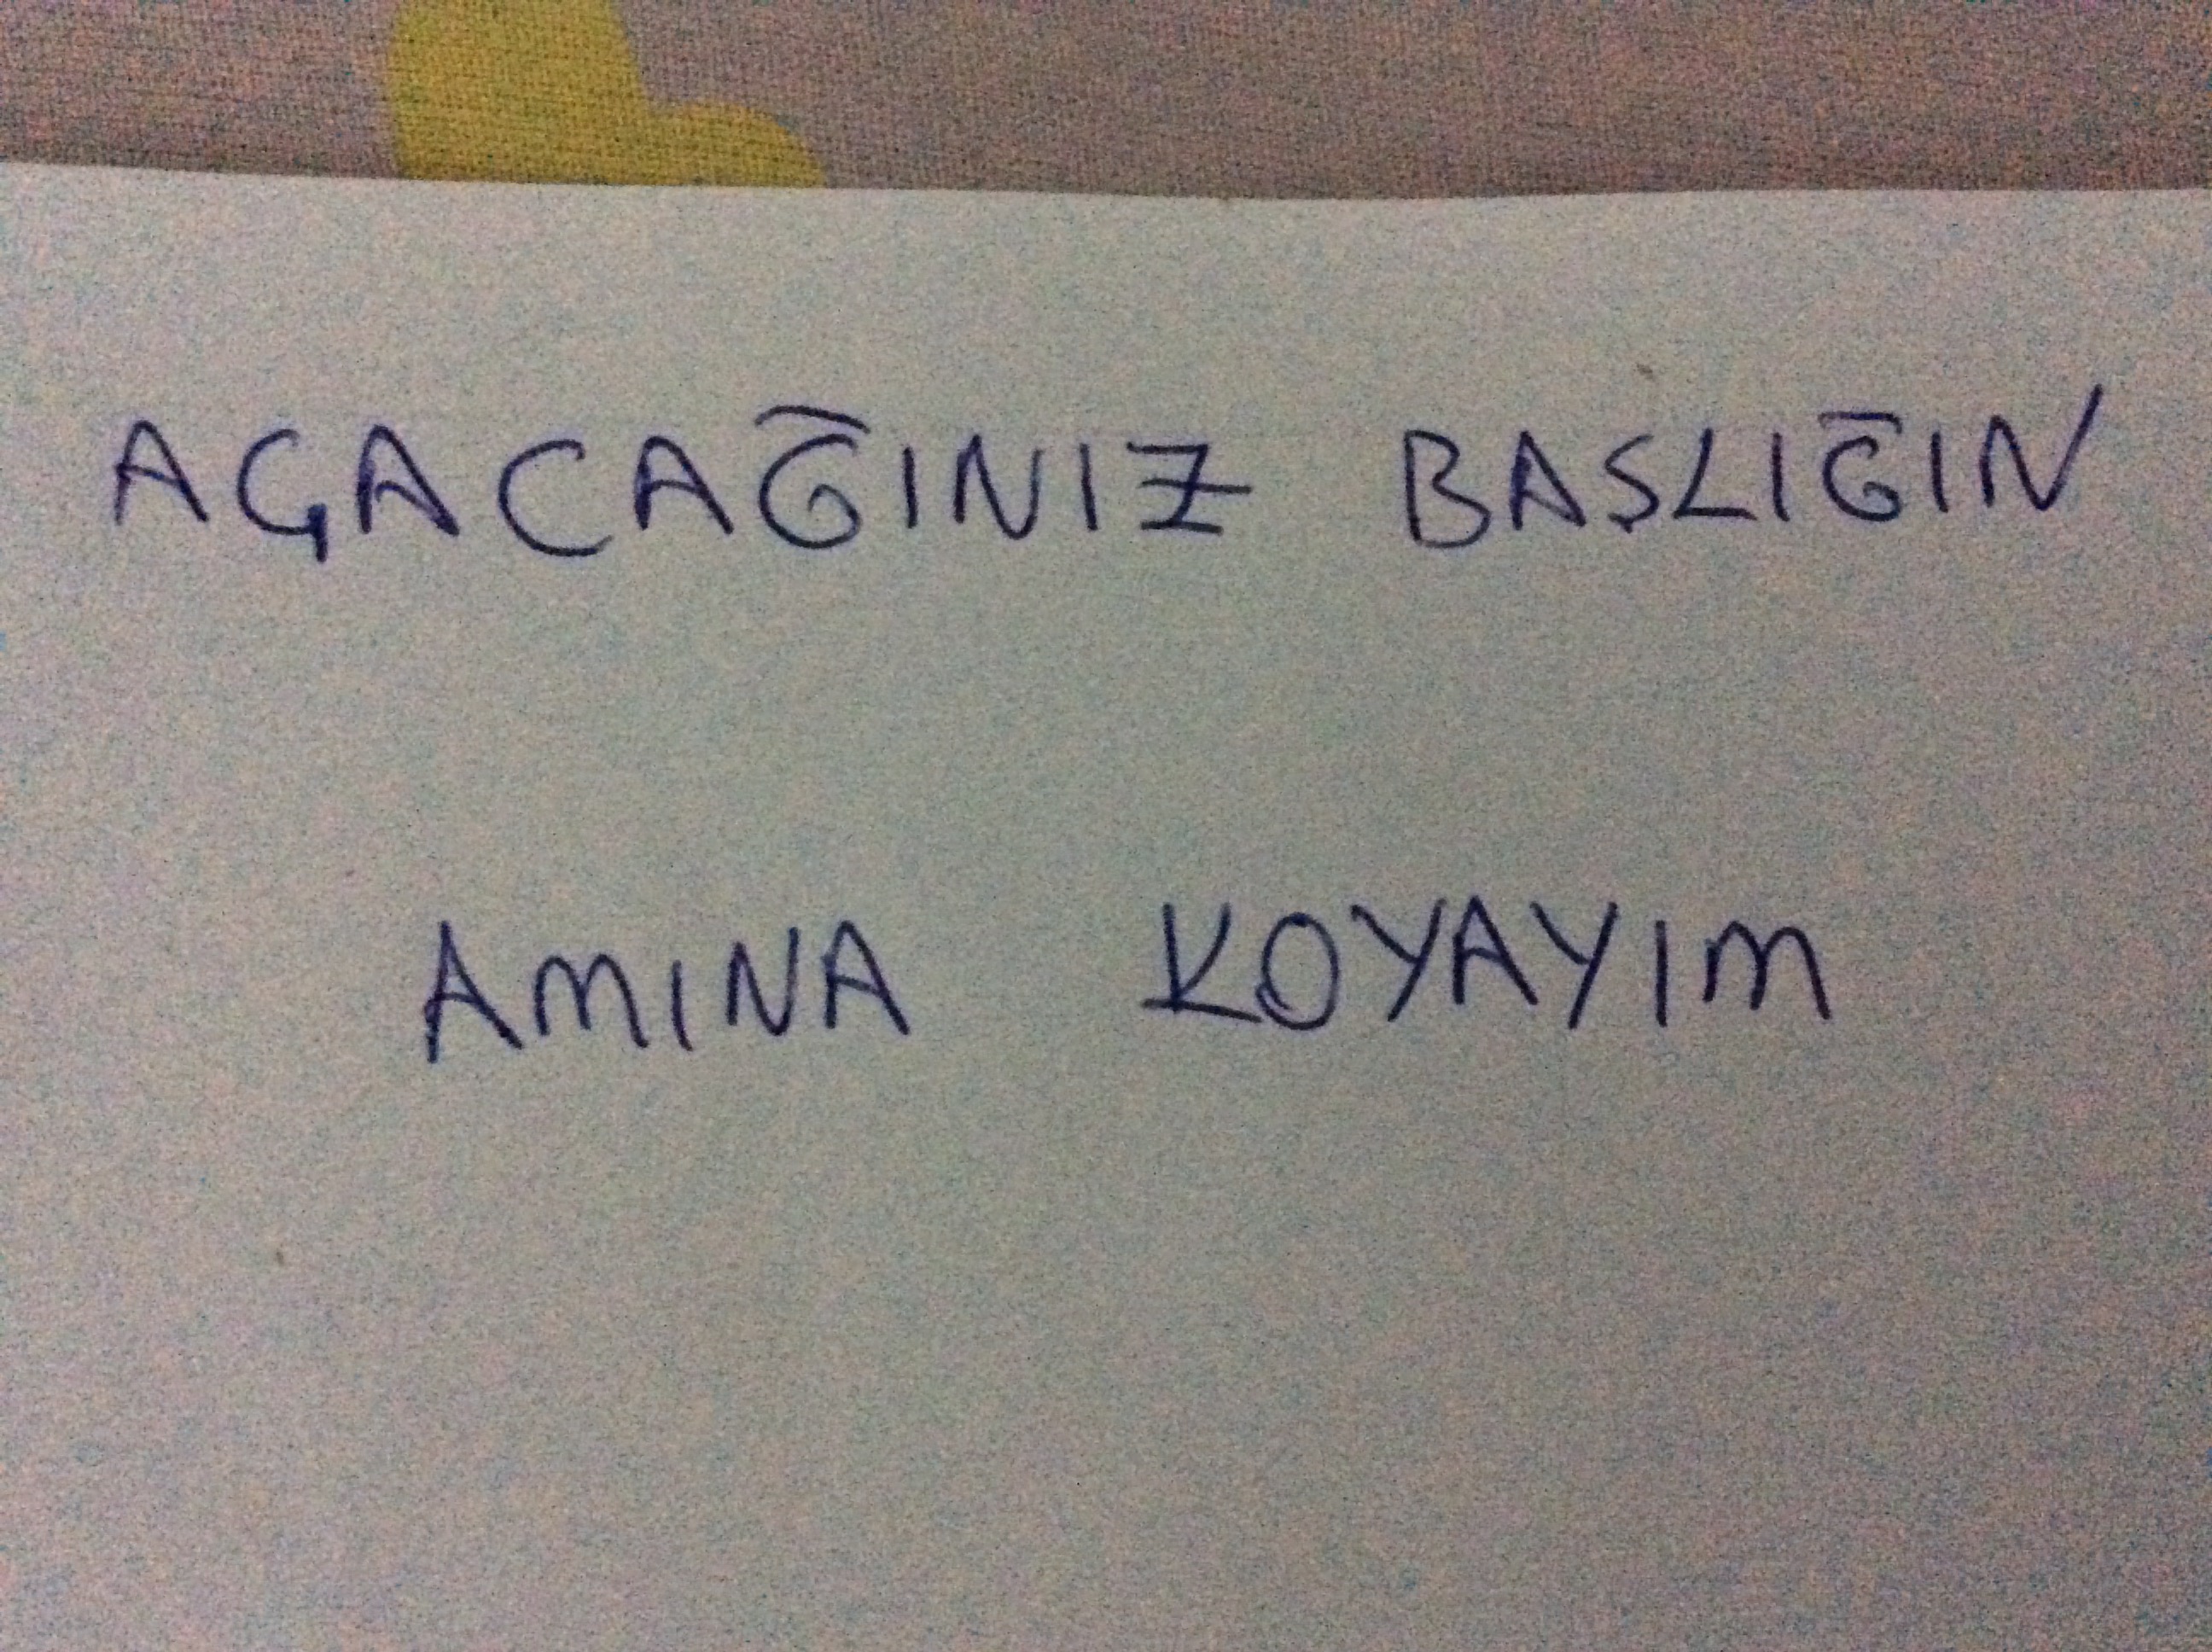 AÇACAĞINIZ BAŞLIĞIN
AMINA KOYAYIM